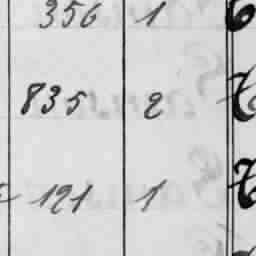 356 1
835 2
121 1